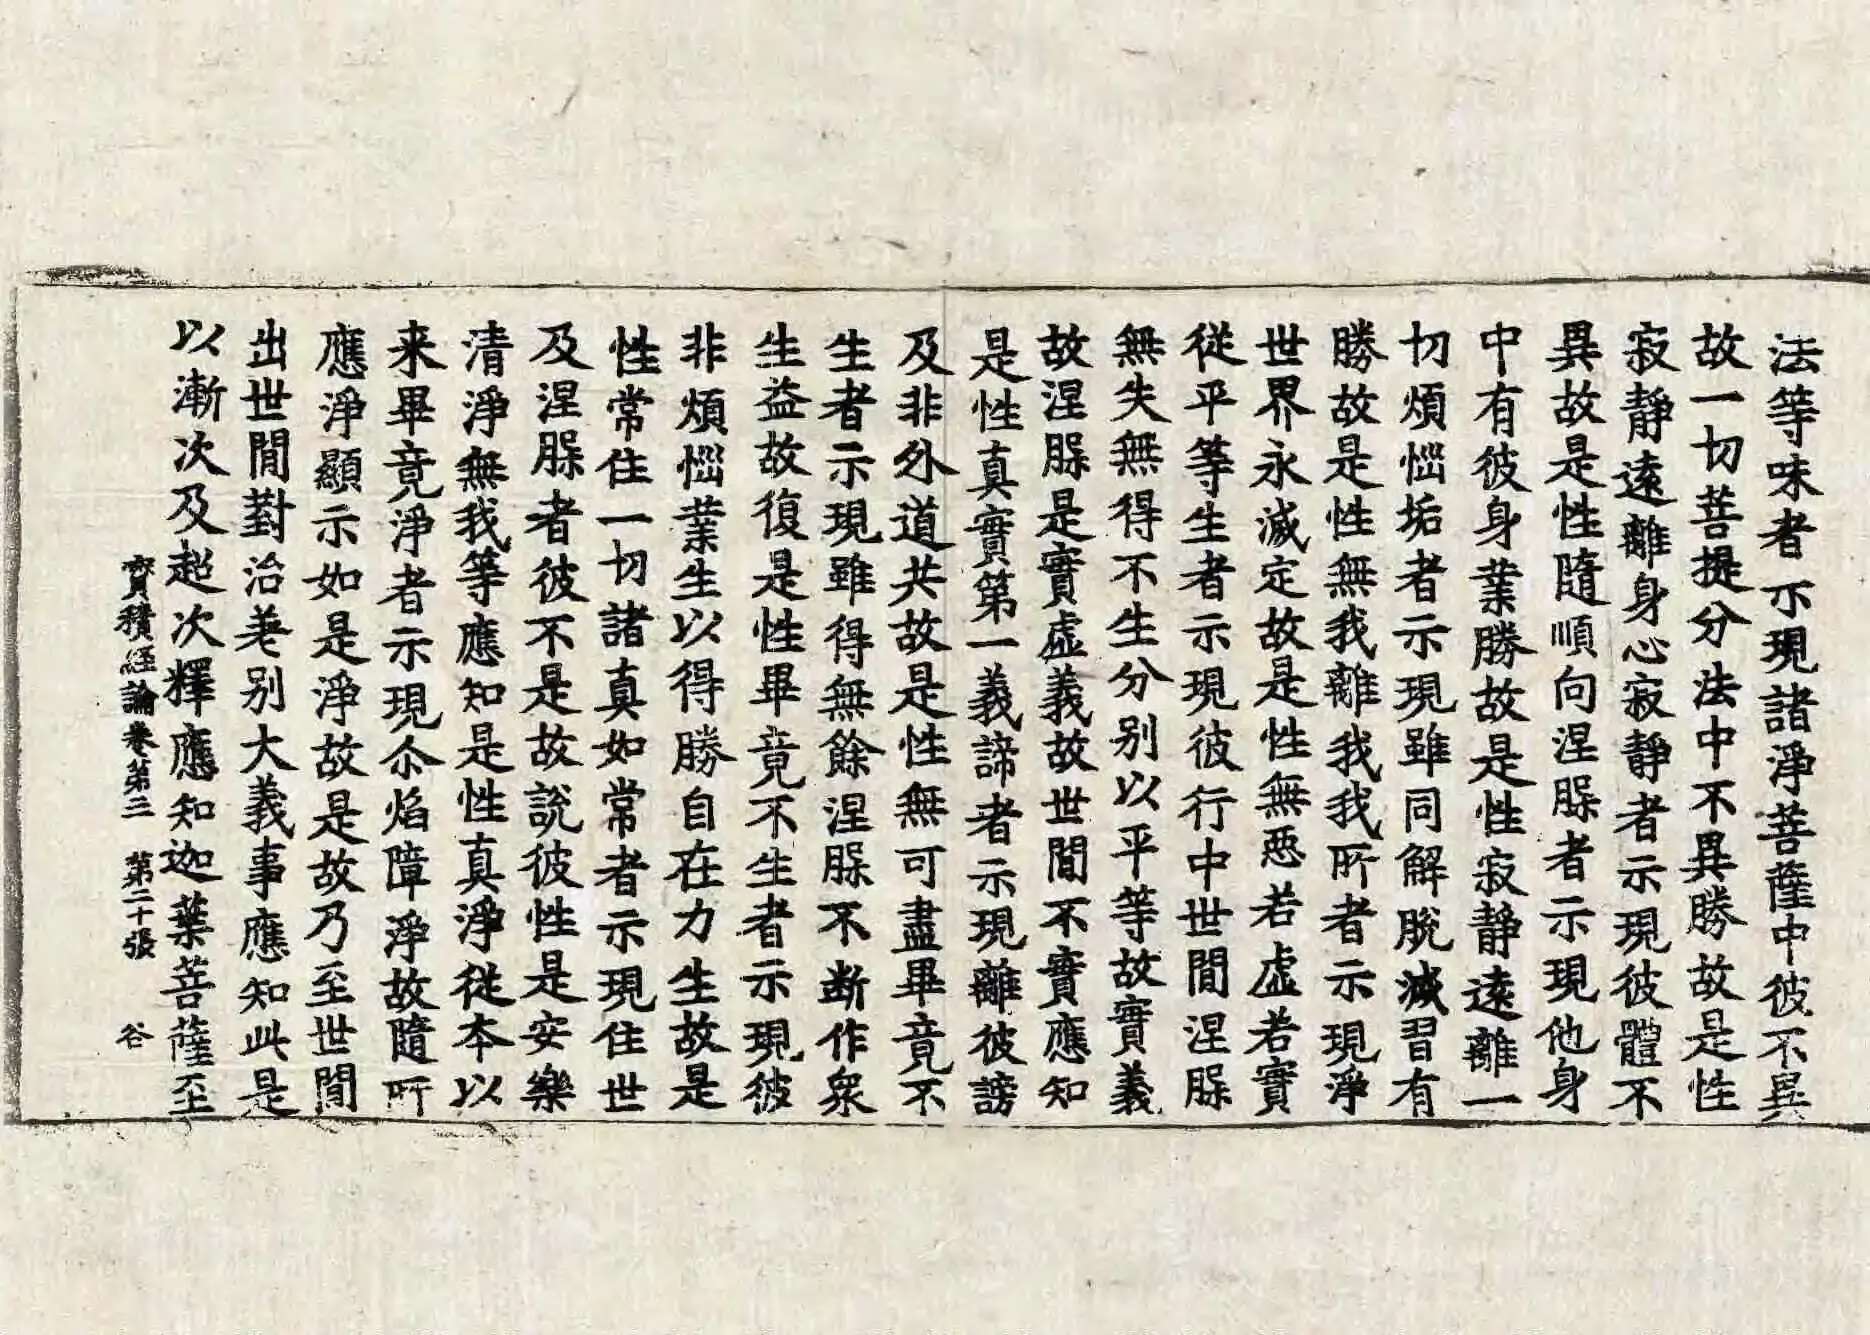 法等味者示現諸淨菩薩中彼不異
故一切菩提分法中不異勝故是性
寂靜遠離身心寂靜者示現彼體不
異故是性隨順向涅脲者示現他身
中有彼身業勝故是性寂靜遠離一
切煩惱垢者示現雖同解脫滅習有
勝故是性無我離我我所者示現淨
世界永滅定故是性無惡若虛若實
從平等生者示現彼行中世間涅脲
無失無得不生分别以平等故實義
故涅脲是實虛義故世間不實應知
是性真實第一義諦者示現離彼謗
及非外道共故是性無可盡畢竟不
生者示現雖得無餘涅脲不断作衆
生益故復是性畢竟不生者示現彼
非煩惱業生以得勝自在力生故是
性常住一切諸真如常者示現住世
及涅脲者彼不是故說彼性是安樂
清淨無我等應知是性真淨從本以
来畢竟淨者示現尒焰障淨故隨所
應淨顯示如是淨故是故乃至世間
出世間對治差别大義事應知此是
以漸次及超次釋應知迦葉菩薩至
寳積經論卷第三 第二十張 谷